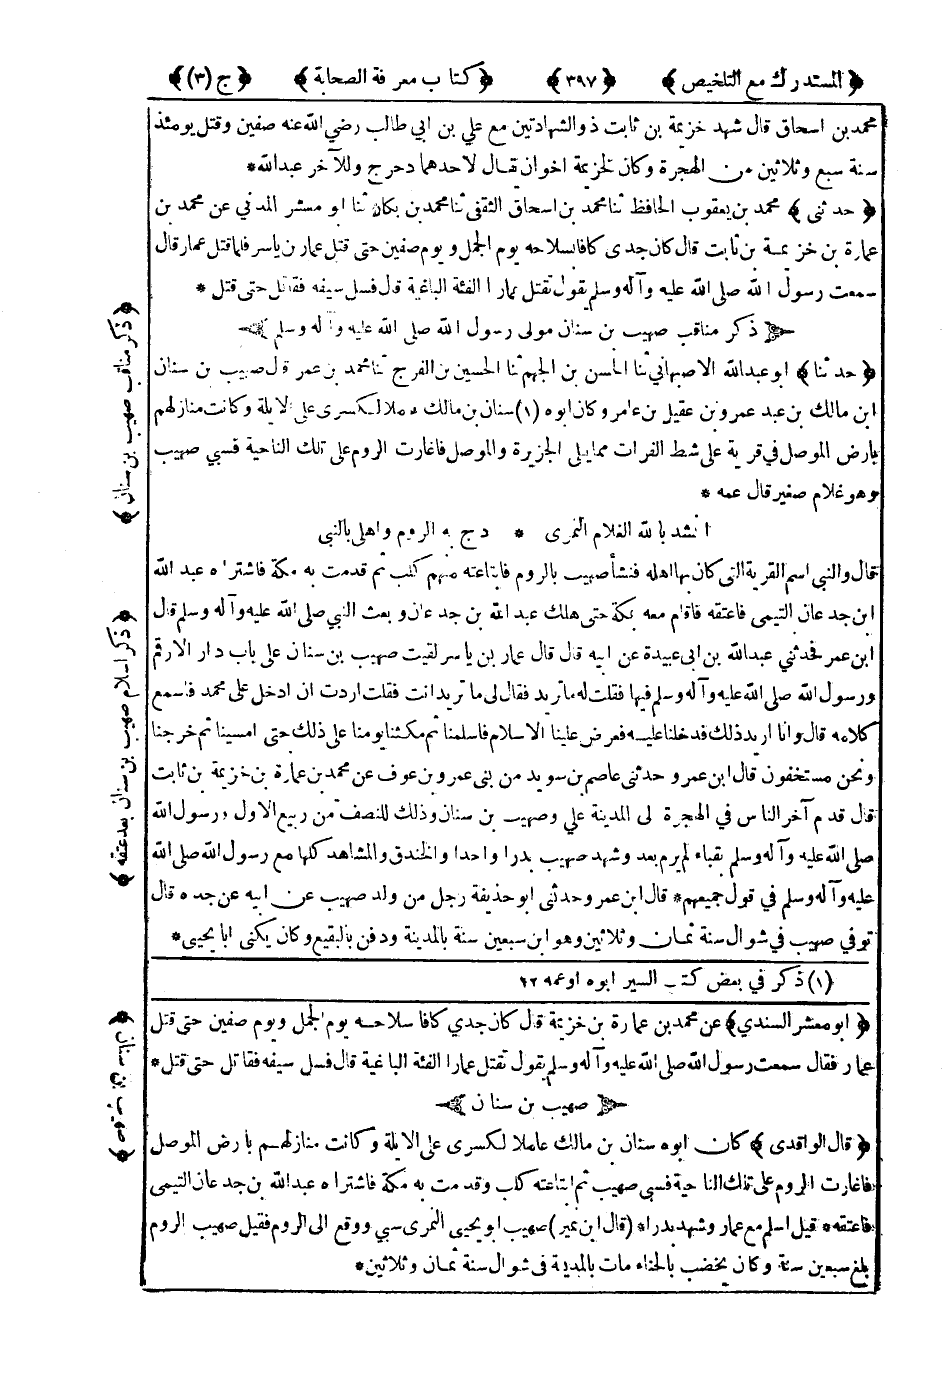 ﴿المستدرك مع التلخيص﴾ ﴿٣٩٧﴾ ﴿كتاب معرفة الصحابة﴾ ﴿ج (٣)﴾
محمد بن اسحاق قال شهد خزيمة بن ثابت ذو الشهادتين مع علي بن ابي طالب رضي الله عنه صفين وقتل يومئذ
سنة سبع وثلاثين من الهجرة وكان لخزيمة اخوان يقال لاحدهما دحرج وللآخر عبدالله*
﴿حدثنى﴾ محمد بن يعقوب الحافظ ثنا محمد بن اسحاق الثقفى ثنا محمد بن بكار ثنا ابو معشر المدني عن محمد بن
عمارة بن خزيمة بن ثابت قال كان جدى كافا بسلاحه يوم الجمل ويوم صفين حتى قتل عمار بن ياسر فلما قتل عمار قال
سمعت رسول الله صلى الله عليه وآله وسلم يقول تقتل عمارا الفئة الباغية قال فسل سيفه فقاتل حتى قتل *
ذكر مناقب صهيب بن سنان مولى رسول الله صلى الله عليه وآله وسلم
﴿حدثنا﴾ ابو عبدالله الاصبهاني ثنا الحسن بن الجهم ثنا الحسين بن الفرج ثنا محمد بن عمر قال صهيب بن سنان
ابن مالك بن عبد عمرو بن عقيل بن عامر وكان ابوه (١) سنان بن مالك عاملا لكسرى على الايلة وكانت منازلهم
بارض الموصل في قرية على شط الفرات مما يلى الجزيرة والموصل فاغارت الروم على تلك الناحية فسبي صهيب
وهو غلام صغير قال عمه *
انشد بالله الغلام النمرى * دج به الروم واهلى بالنبى
قال والنبي اسم القرية التى كان بها اهله فنشأ صهيب بالروم فابتاعته منهم كلب ثم قدمت به مكة فاشتراه عبد الله
ابن جدعان التيمى فاعتقه فاقام معه بمكة حتى هلك عبد الله بن جدعان وبعث النبي صلى الله عليه وآله وسلم قال
ابن عمر فحدثني عبدالله بن ابى عبيدة عن ابيه قال قال عمار بن ياسر لقيت صهيب بن سنان على باب دار الارقم
ورسول الله صلى الله عليه وآله وسلم فيها فقلت له ما تريد فقال لى ما تريد انت فقلت اردت ان ادخل على محمد فاسمع
كلامه قال وانا اريد ذلك فدخلنا عليه فعرض علينا الاسلام فاسلمنا ثم مكثنا يومنا على ذلك حتى امسينا ثم خرجنا
ونحن مستخفون قال ابن عمرو حدثنى عاصم بن سويد من بنى عمرو بن عوف عن محمد بن عمارة بن خزيمة بن ثابت
قال قدم آخر الناس في الهجرة لى المدينة علي وصهيب بن سنان وذلك للنصف من ربيع الاول ورسول الله
صلى الله عليه وآله وسلم بقباء لم يرم بعد وشهد صهيب بدرا واحدا والخندق والمشاهد كلها مع رسول الله صلى الله
عليه وآله وسلم في قول جميعهم* قال ابن عمر وحدثنى ابو حذيفة رجل من ولد صهيب عن ابيه عن جده قال
توفي صهيب في شوال سنة ثمان وثلاثين وهو ابن سبعين سنة بالمدينة ودفن بالبقيع وكان يكنى ابا يحيى*
(١) ذكر في بعض كتب السير ابوه او عمه ١٢
﴿ابو معشر السندي﴾ عن محمد بن عمارة بن خزيمة قال كان جدي كافا سلاحه يوم الجمل ويوم صفين حتى قتل
عمار فقال سمعت رسول الله صلى الله عليه وآله وسلم يقول تقتل عمارا الفئة الباغية قال فسل سيفه فقاتل حتى قتل*
صهيب بن سنان
﴿قال الواقدى﴾ كان ابوه سنان بن مالك عاملا لكسرى على الايلة وكانت منازلهم بارض الموصل
فاغارت الروم على تلك الناحية فسبي صهيب ثم ابتاعته كلب وقدمت به مكة فاشتراه عبد الله بن جدعان التيمى
فاعتقه* قيل اسلم مع عمار وشهد بدرا* (قال ابن نمير) صهيب ابو يحيى النمرى سبي ووقع الى الروم فقيل صهيب الروم
بلغ سبعين سنة وكان يخضب بالحناء مات بالمدينة فى شوال سنة ثمان وثلاثين*
﴿ذكر مناقب صهيب بن سنان﴾
﴿ذكر اسلام صهيب بن سنان بعد عتقه﴾
﴿صهيب بن سنان﴾